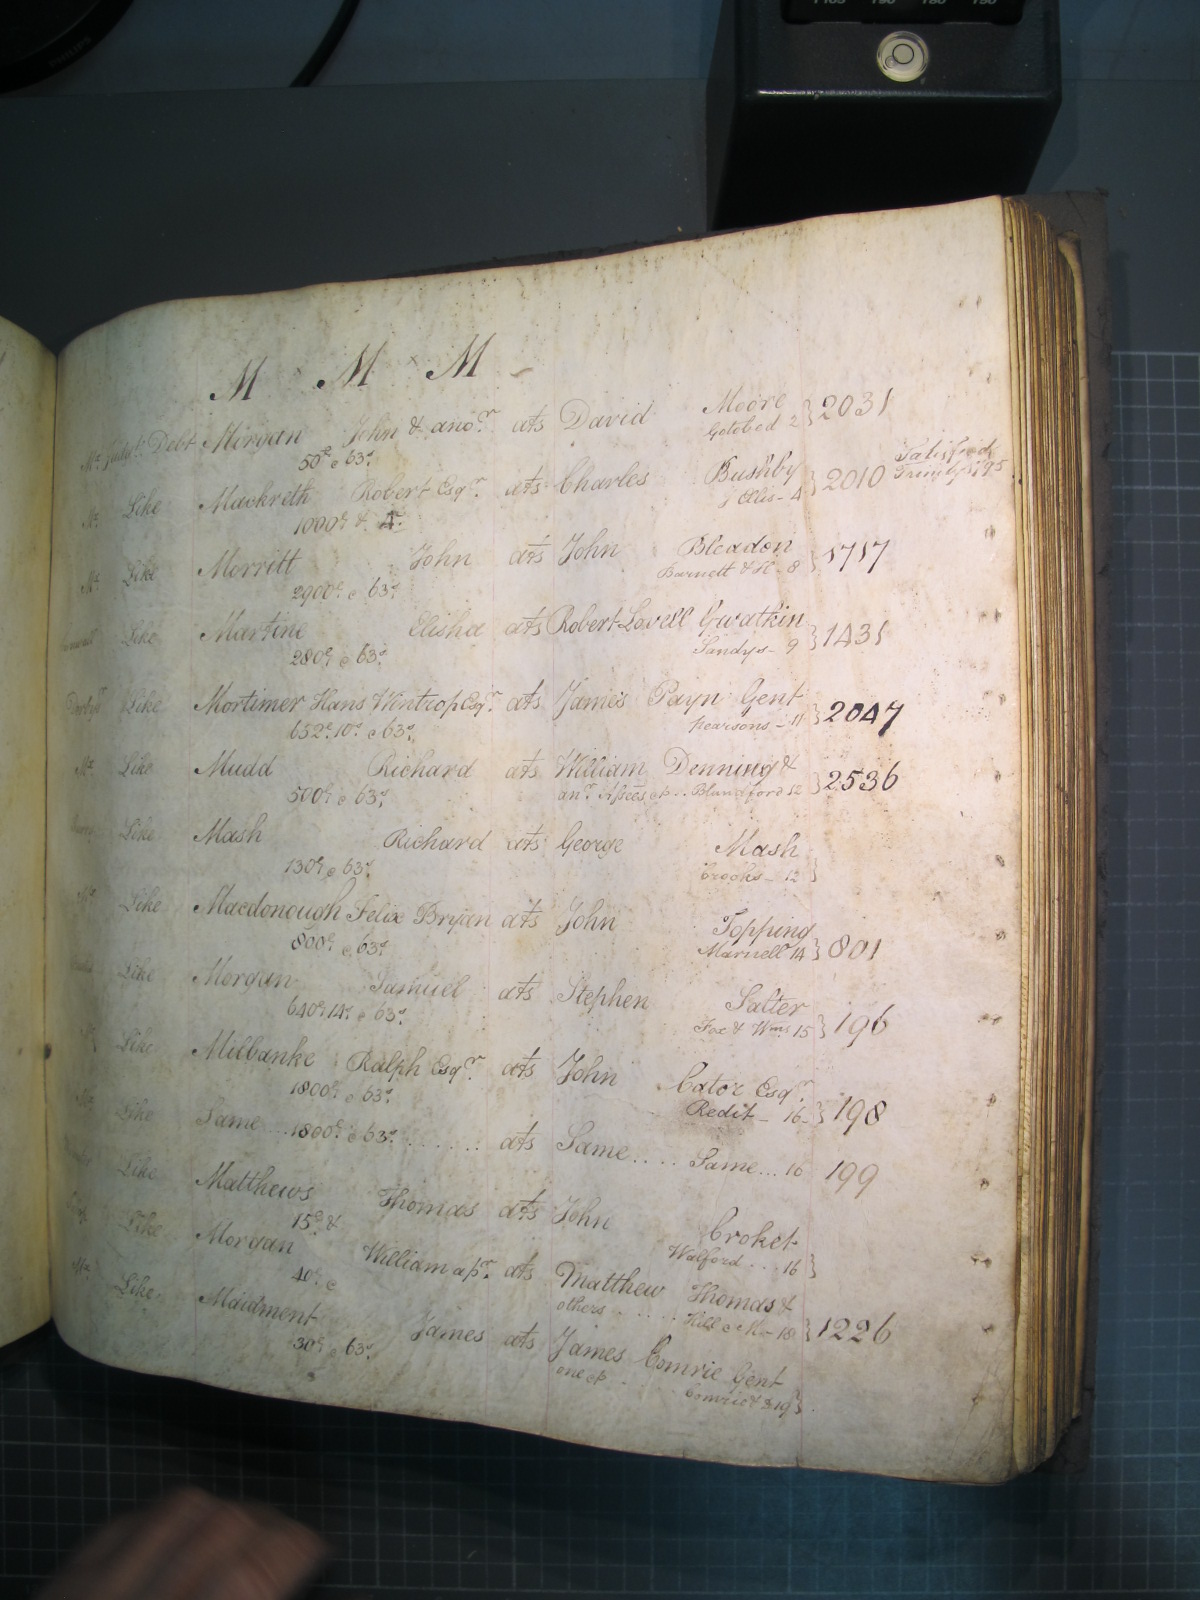 M M M
Debt Morgan John & ano.r ats David Moore
50£ c 63s Gotobed 2} 2031
Like Mackreth Robert Esq.r ats Charles Bushby Satisfied
1000£ & Ellis - 4} 2010 Trinity 1795
Like Merritt John ats John Bleadon
2900£ c 63s Barnett & H - 8} 1717
Like Martine Elisha ats Robert Lovell Gwatkin
280£ c 63s Sandys - 9} 1431
Like Mortimer Hans Wintrop Esq.r ats James Payn Gent
652£ 10s c 63s Pearsons - 11} 2047
Like Mudd Richard ats William Denning &
500£ c 63s an.r Assees &c .. Blandford 12} 2536
Like Mash Richard ats George Mash
130£ c 63s Crooks - 12}
Like Macdonough Felix Bryan ats John Topping
800£ c 63s Marnell 14} 801
Like Morgan Samuel ats Stephen Salter
640£ 14s c 63s Fox & Wms 15} 196
Like Milbanke Ralph Esq.r ats John Cator Esq.r
1800£ c 63s Redit - 16} 198
Like Same ... 1800£ c 63s ....... ats Same .... Same ... 16 199
Like Matthews Thomas ats John Croket
15£ & Walford ... 16}
Like Morgan William ats Matthew Thomas &
40s c others ..... Hill & M - 18} 1226
Like Maidment James ats James Comrie Gent
30£ c 63s one &c Comrie & 19}
PHILIPS